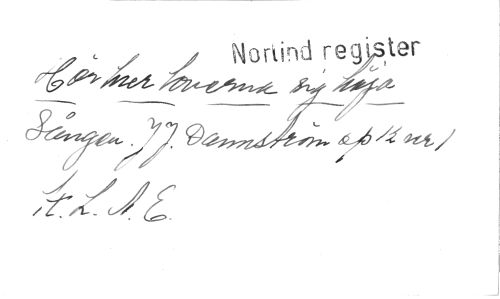 Norlind register
Hör hur tonerna sig höja
Sången. J. J. Dannström op 12 nr 1
st. L. A. E.